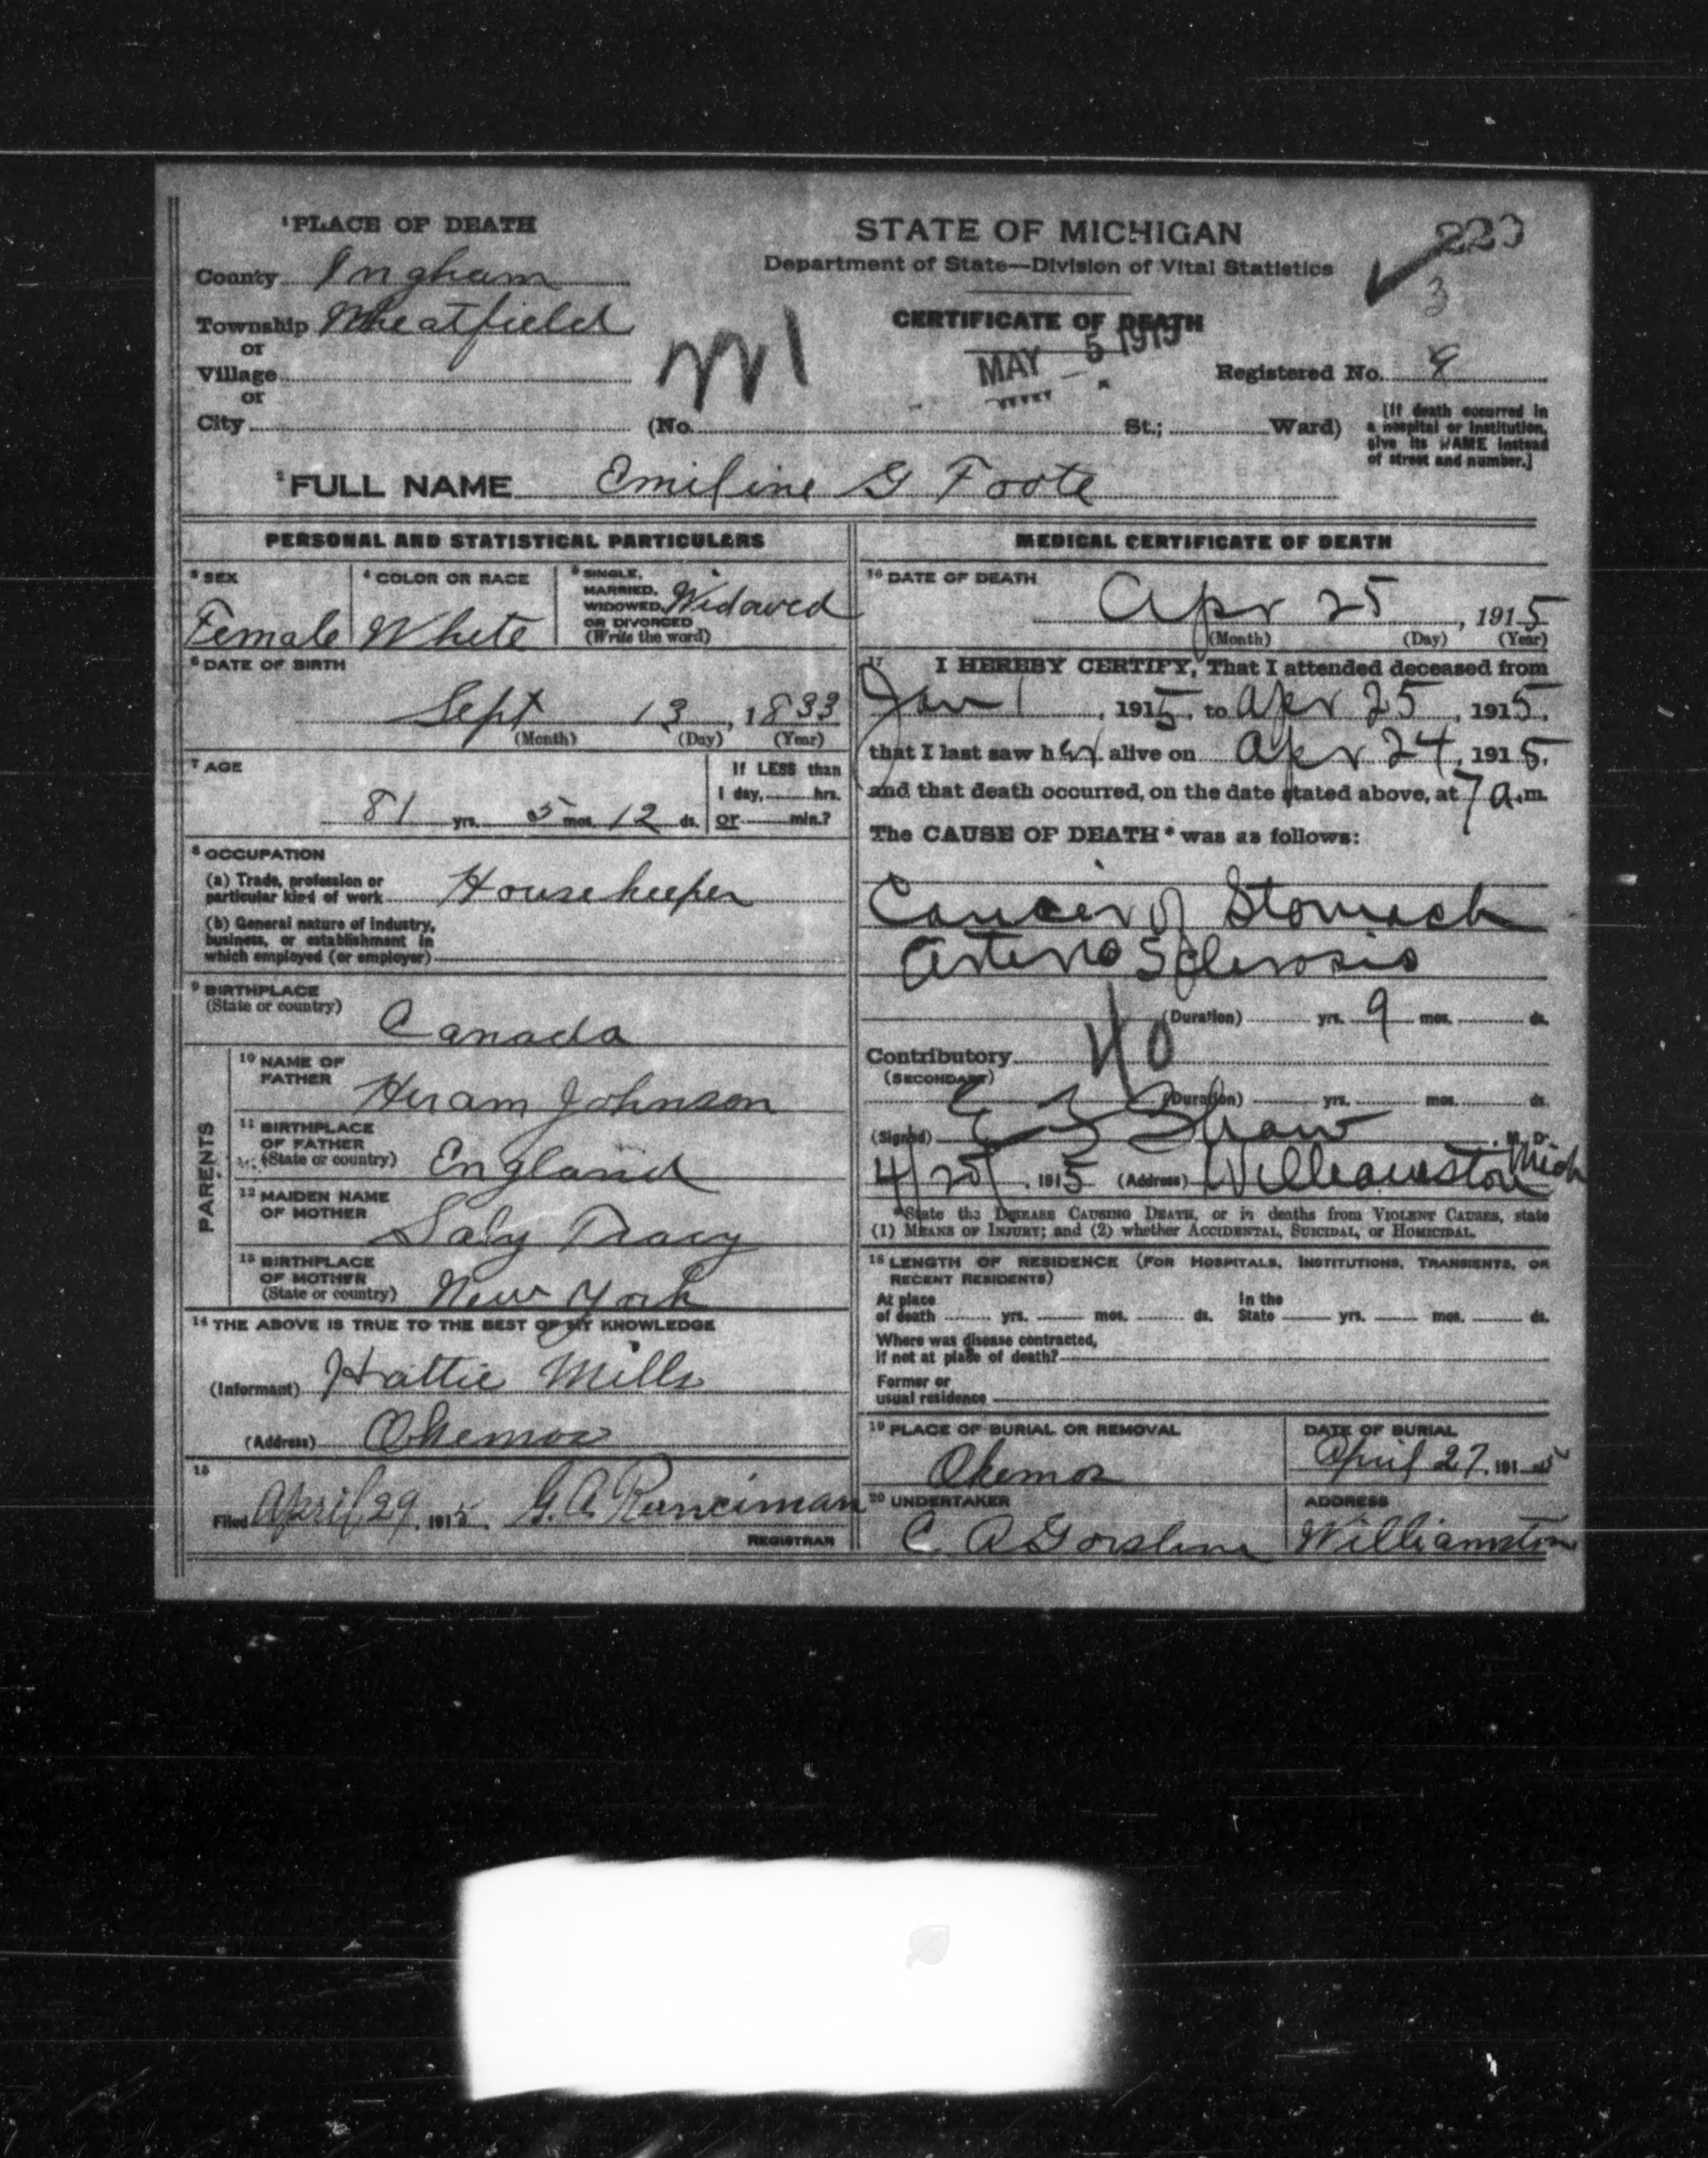 ¹PLACE OF DEATH
County Ingham
Township Wheatfield
or
Village
or
City
STATE OF MICHIGAN
Department of State—Division of Vital Statistics
CERTIFICATE OF DEATH
MAY 5 1915
223
3
Registered No.
(No. St.; Ward)
[If death occurred in
a hospital or institution,
give its NAME instead
of street and number.]
²FULL NAME Emiline G Foote
PERSONAL AND STATISTICAL PARTICULARS
³ SEX
Female
⁴ COLOR OR RACE
White
⁵ SINGLE,
MARRIED,
WIDOWED,
OR DIVORCED
(Write the word)
Widowed
⁶ DATE OF BIRTH
Sept 13, 1833
(Month) (Day) (Year)
⁷ AGE
81 yrs. 5 mos. 12 ds.
If LESS than
1 day, hrs.
or min.?
⁸ OCCUPATION
(a) Trade, profession or
particular kind of work Housekeeper
(b) General nature of industry,
business, or establishment in
which employed (or employer)
⁹ BIRTHPLACE
(State or country)
Canada
PARENTS
¹⁰ NAME OF
FATHER
Hiram Johnson
¹¹ BIRTHPLACE
OF FATHER
(State or country) England
¹² MAIDEN NAME
OF MOTHER
Saly Tracy
¹³ BIRTHPLACE
OF MOTHER
(State or country) New York
¹⁴ THE ABOVE IS TRUE TO THE BEST OF MY KNOWLEDGE
(Informant) Hattie Mills
(Address) Okemos
¹⁵
Filed April 29, 1915. G. A. Runciman
REGISTRAR
MEDICAL CERTIFICATE OF DEATH
¹⁶ DATE OF DEATH
Apr 25, 1915
(Month) (Day) (Year)
¹⁷ I HEREBY CERTIFY, That I attended deceased from
Jan 1, 1915, to Apr 25, 1915,
that I last saw her alive on Apr 24, 1915,
and that death occurred, on the date stated above, at 7 a.m.
The CAUSE OF DEATH* was as follows:
Cancer of Stomach
Arterio Sclerosis
(Duration) yrs. 9 mos. ds.
Contributory 40
(SECONDARY)
(Duration) yrs. mos. ds.
(Signed) Shaw, M. D.
4/25/, 1915 (Address) Williamston Mich
*State the DISEASE CAUSING DEATH, or in deaths from VIOLENT CAUSES, state
(1) MEANS OF INJURY; and (2) whether ACCIDENTAL, SUICIDAL, or HOMICIDAL.
¹⁸ LENGTH OF RESIDENCE (FOR HOSPITALS, INSTITUTIONS, TRANSIENTS, OR
RECENT RESIDENTS)
At place
of death yrs. mos. ds.
In the
State yrs. mos. ds.
Where was disease contracted,
if not at place of death?
Former or
usual residence
¹⁹ PLACE OF BURIAL OR REMOVAL
Okemos
DATE OF BURIAL
April 27, 1915
²⁰ UNDERTAKER
C. A Gorsline
ADDRESS
Williamston